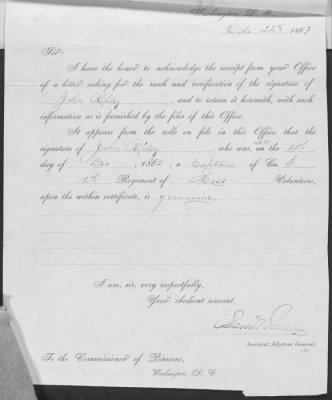 Washington, D. C.
1863.
Sir:
I have the honor to acknowledge the receipt from your Office
of a letter asking for the rank and verification of the signature of
John Ripley, and to return it herewith, with such
information as is furnished by the files of this Office.
It appears from the rolls on file in this Office that the
signature of John Ripley who was, on the
day of Dec, 1862, a Captain of Co. B
Regiment of Mass Volunteers,
upon the within certificate, is genuine.
I am, sir, very respectfully,
Your obedient servant,
Assistant Adjutant General.
To the Commissioner of Pensions,
Washington, D. C.